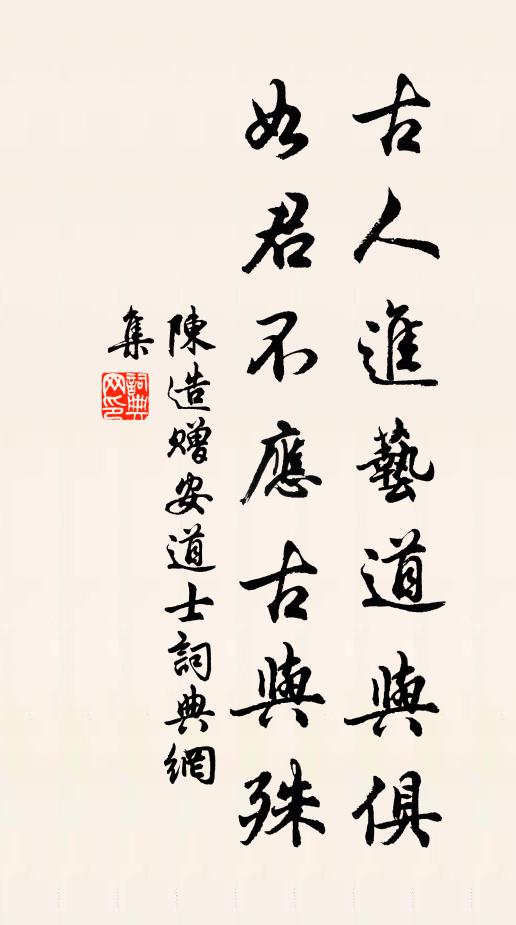 古人進藝道與俱
如君不應古與殊
陳造贈安道士詞典網
集
詞典
网印